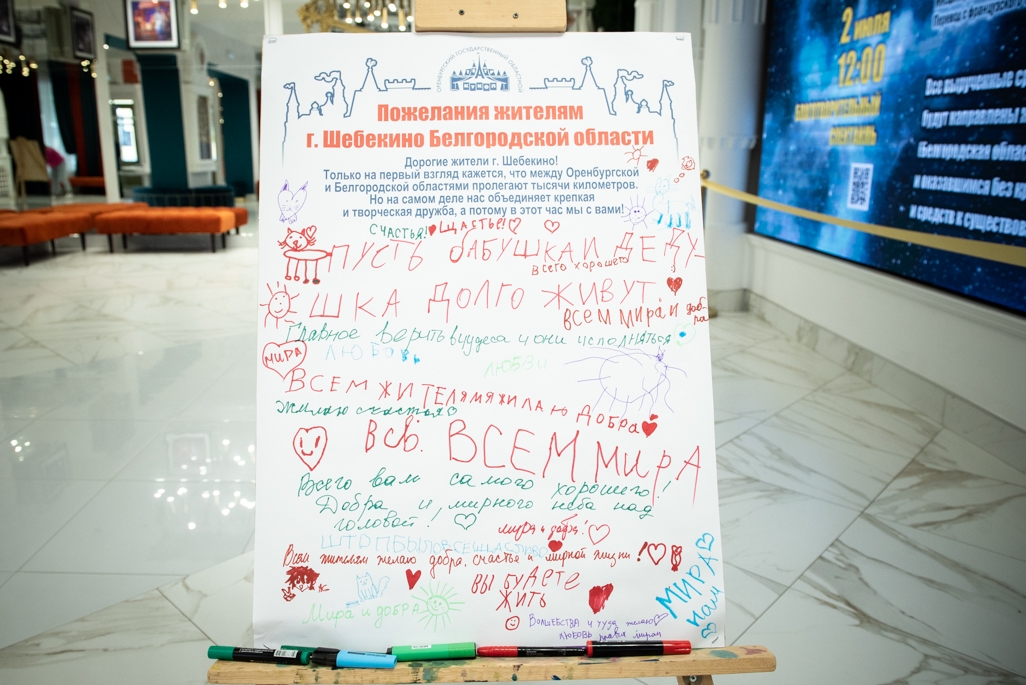 ОРЕНБУРГСКИЙ ГОСУДАРСТВЕННЫЙ ОБЛАСТНОЙ
Пожелания жителям
г. Шебекино Белгородской области
Дорогие жители г. Шебекино!
Только на первый взгляд кажется, что между Оренбургской
и Белгородской областями пролегают тысячи километров.
Но на самом деле нас объединяет крепкая
и творческая дружба, а потому в этот час мы с вами!
СЧАСТЬЯ! ЩАСТЬЕ!
ПУСТЬ БАБУШКА И ДЕДУ-
Всего хорошего
ШКА ДОЛГО ЖИВУТ.
Всем мира и доб-
ра
Главное верить в чудеса и они исполняться
МИРА
ЛЮБОВЬ
ЛЮБВИ
ВСЕМ ЖИТЕЛЯМ Я ЖИЛАЮ ДОБРА
Жилаю счастья
ВСЕМ МИРА
Всего вам самого хорошего!
Добра и, мирного неба над
головой!
мира и добра!
ШТОПБЫЛОВСЕЩАСЛИВО
Всем жителям желаю добра, счастья и мирной жизни!
ВЫ БУДЕТЕ
ЖИТЬ
МИРА
Нам
Мира и добра
Волшебства и чуда желаю
любовь мира
2 июля
12:00
БЛАГОТВОРИТЕЛЬНЫЙ
СПЕКТАКЛЬ
Перевод с французского
Все вырученные с
будут направлены
(Белгородская облас
и оказавшимся без к
и средств к существов